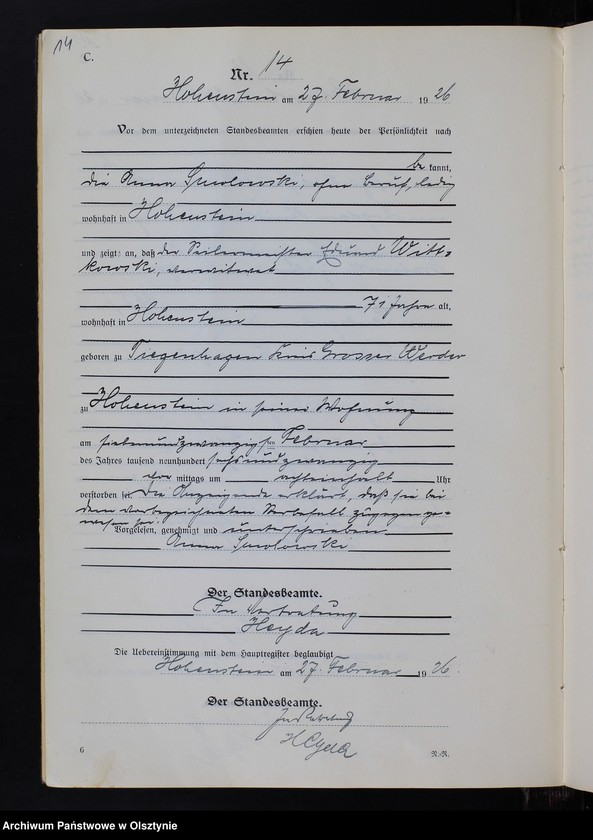 14
C.
Nr. 14
Hohenstein am 27 Februar 1926
Vor dem unterzeichneten Standesbeamten erschien heute der Persönlichkeit nach
be kannt,
die Anna Smolowski, ohne Beruf, ledig
wohnhaft in Hohenstein
und zeigte an, daß der Seilermeister Eduard Witt-
kowski, verwitwet
71 Jahre alt,
wohnhaft in Hohenstein
geboren zu Tiegenhagen Kreis Grosser Werder
zu Hohenstein in seiner Wohnung
am siebenundzwanzigsten Februar
des Jahres tausend neunhundert sechsundzwanzig
vor mittags um achteinhalb Uhr
verstorben sei. Die Anzeigende erklärt, daß sie bei
dem vorbezeichneten Sterbefall zugegen ge-
wesen sei.
Vorgelesen, genehmigt und unterschrieben
Anna Smolowski
Der Standesbeamte.
In Vertretung
Heyda
Die Uebereinstimmung mit dem Hauptregister beglaubigt
Hohenstein am 27 Februar 1926.
Der Standesbeamte.
In Vertretung
Heyda
6 R.-R.
Archiwum Państwowe w Olsztynie